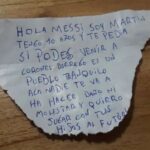 HOLA MESSI SOY MARTIN
TENGO 10 AÑOS Y TE PEDA
SI PODES VENIR A
CORONEL DORREGO ES UN
PUEBLO TANQUILO
ACA NADIE TE VA
HA HACER DAÑO NI
MONSTIAR Y QUIERO
JUGAR CON TUS
HIJOS AL FUTBOL